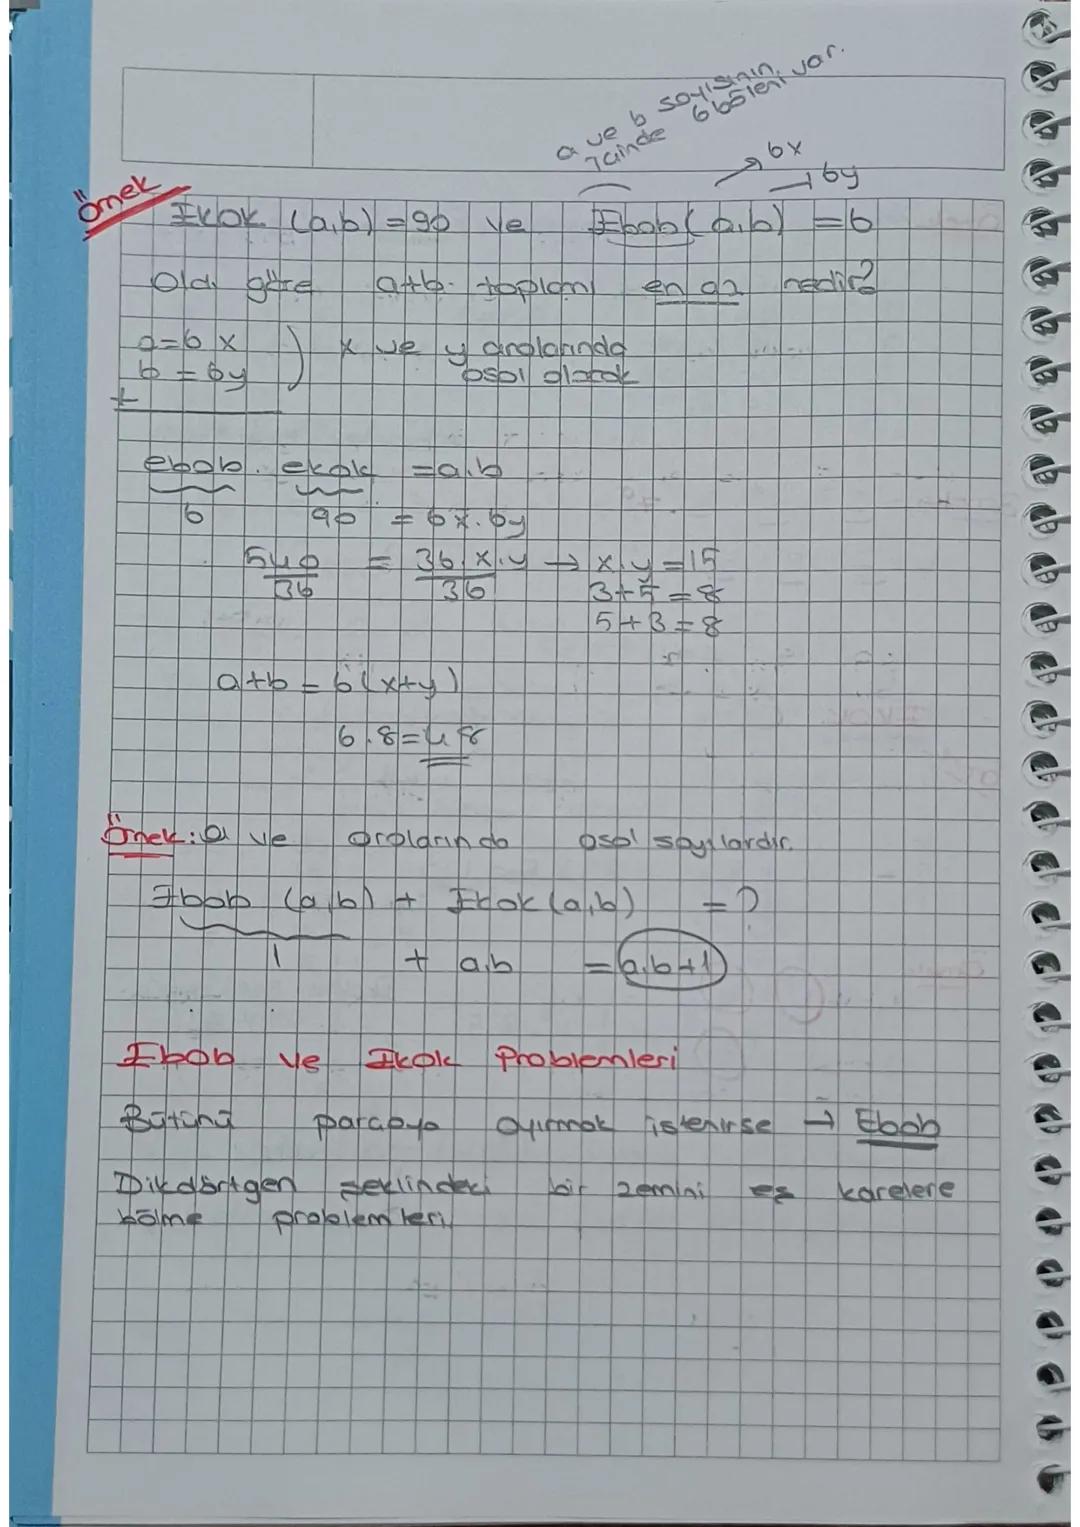 a ve b sayısının
içinde 6 böleni var.
6x
6y
Örnek
İkok (a,b) = 90 ve Ebob(a,b) = 6
Old. göre a+b toplamı en az nedir?
a=6x
b = 6y
x ve y aralarında
asal olarak
+
ebob . ekok = a.b
6 90 = 6x.6y
540/36 = 36.x.y/36 → x.y = 15
3+5 = 8
5+3 = 8
a+b = 6(x+y)
6.8 = 48
Örnek: a ve aralarında asal sayılardır.
Ebob (a,b) + İkok (a,b) = ?
1 + a.b = a.b+1
Ebob ve İkok Problemleri
Bütünü parçaya ayırmak istenirse → Ebob
Dikdörtgen şeklindeki bir zemini eş karelere
bölme problemleri